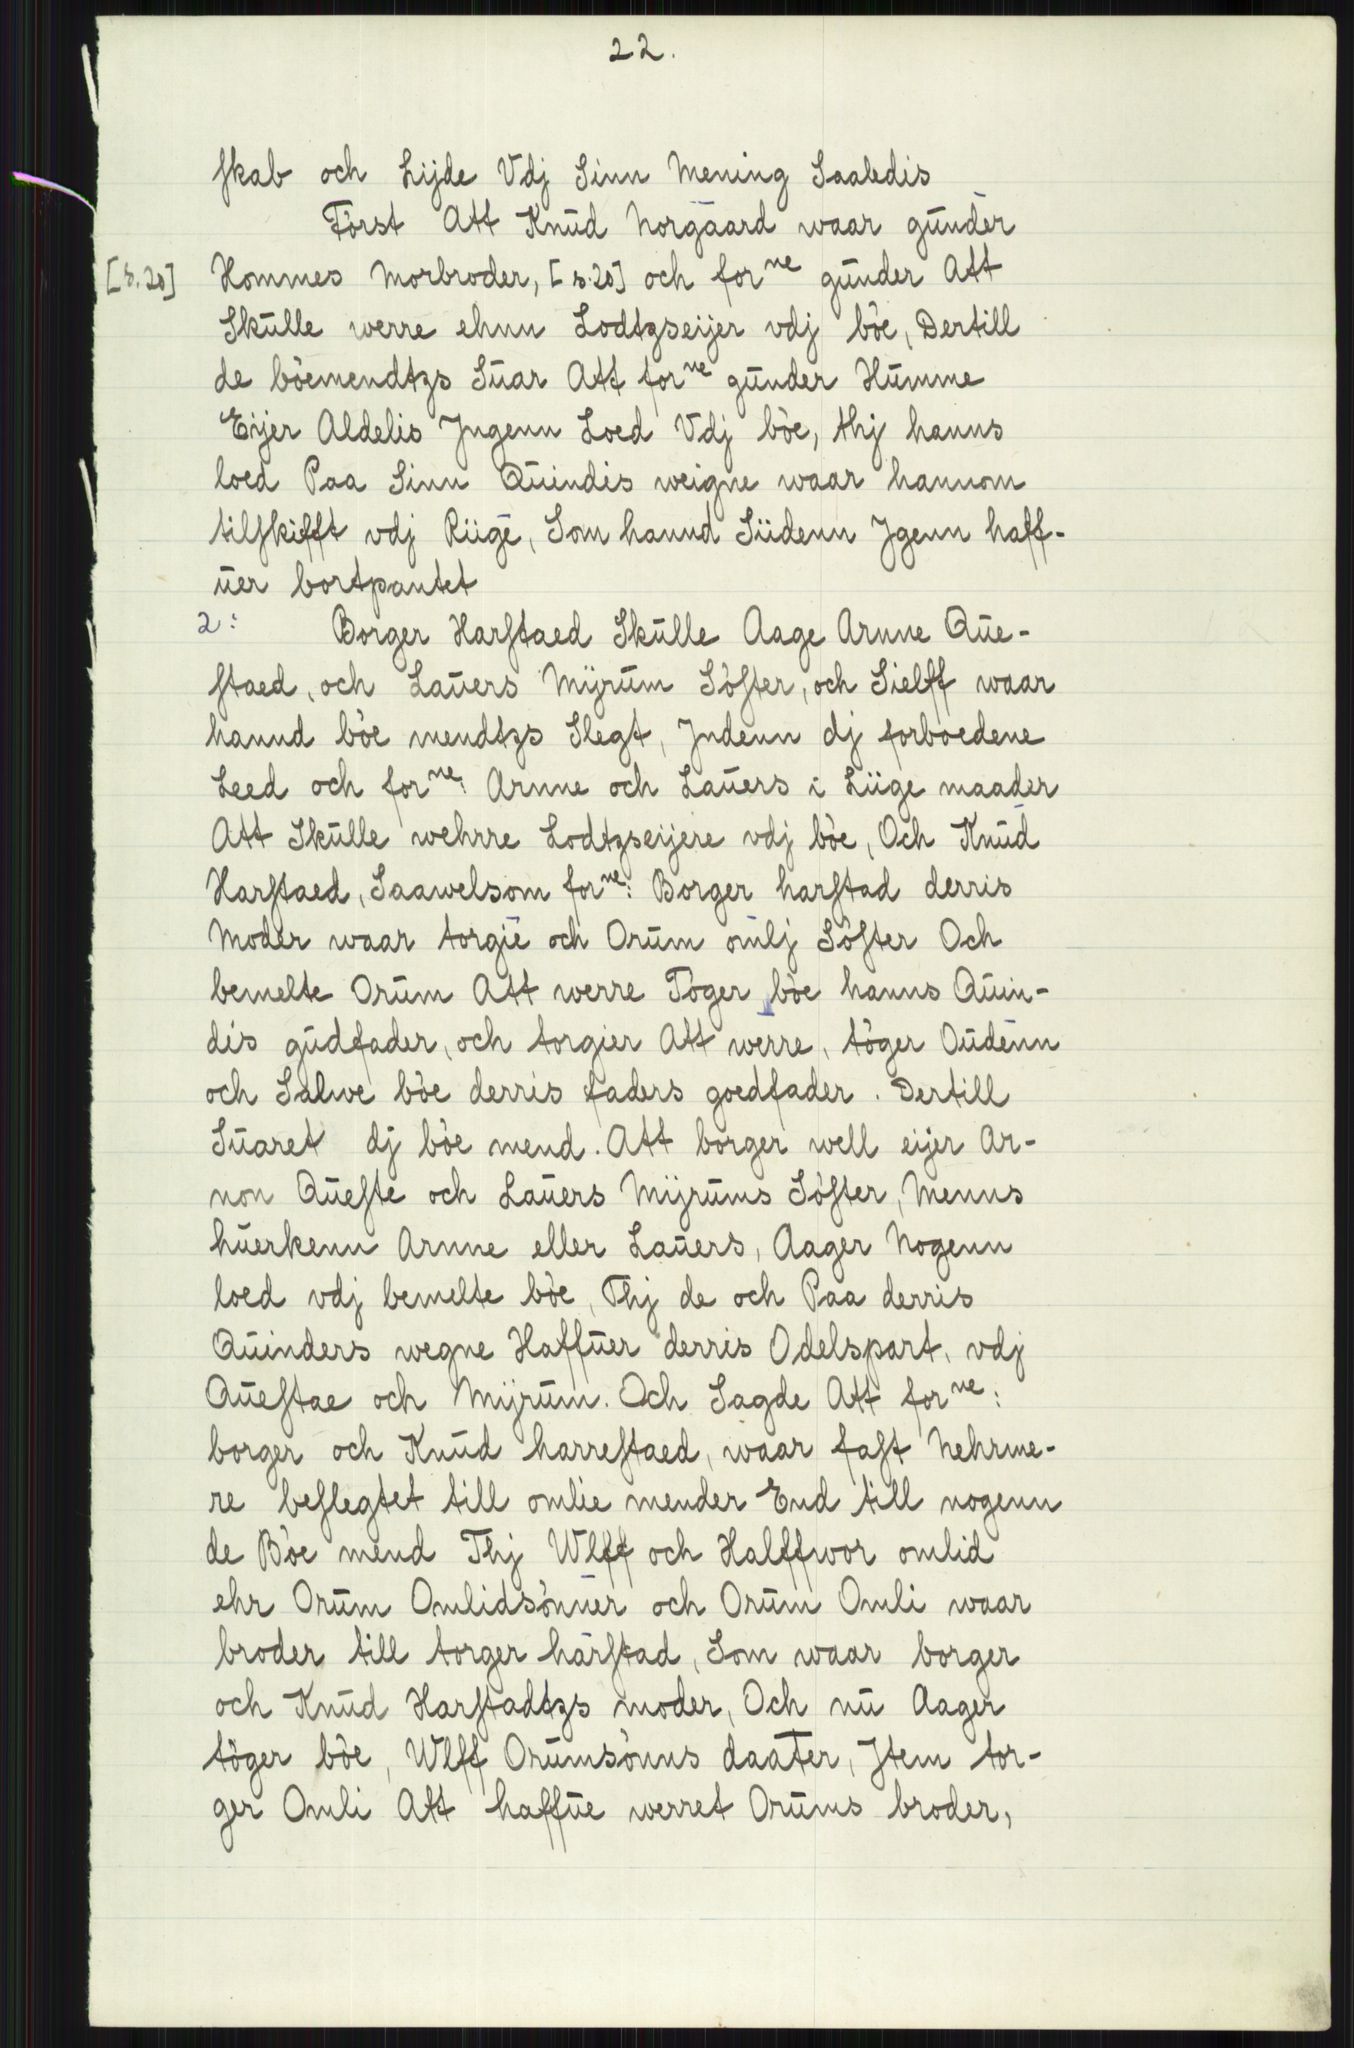 22.
skab och Lijde Vdj Sinn Mening Saaledis
Først Att Knūd Norgaard waar gūnder
[s. 20] Hommes Morbroder, [s. 20] och for ne gūnder Att
Skūlle werre ehnn Lodtzseijer vdj bòe, Dertill
de bòemendtzs Sūar Att for ne gūnder Hūmme
Eijer Aldelis Jngenn Loed Vdj bòe, thj hanns
loed Paa Sinn Qūindis weigne waar hannom
tilskifft vdj Riige, Som hannd Siidenn Jgenn haff-
ūer bortpantet
2: Borger Harstaed Skūlle Aage Arnne Qūe-
staed, och Laūers Mÿrūm Sòster, och Sielff waar
hannd bòe mendtzs Slegt, Jndenn dj forboedene
Leed och for ne: Arnne och Laūers i Liige maader
Att Skūlle wehrre Lodtzseijere vdj bòe, Och Knūd
Harstaed, Saawelsom for ne: Borger harstad derris
Moder waar torgie och Orūm omlj Sòster Och
bemelte Orūm Att werre Tòger bòe hanns Qūin-
dis gūdfader, och torgier Att werre, tòger Oūdenn
och Salwe bòe derris faders goedfader. Dertill
Sūaret dj bòe mend. Att borger well eijer Ar-
non Qūeste och Laūers Mÿrūms Sòster, Menns
hūerkenn Arnne eller Laūers, Aager Nogenn
loed vdj bemelte bòe, Thj de och Paa derris
Qūinders wegne Haffūer derris Odelspart, vdj
Qūestae och Mÿrūm. Och Sagde Att for ne:
borger och Knūd harrestaed, waar fast Nehrme-
re beslegtet till omlie mender End till nogenn
de Bòe mend Thj Wlff och Halffwor omlid
ehr Orūm Omlidsònner och Orūm Omli waar
broder till torger harstad, Som waar borger
och Knūd Harstadtzs moder, Och nū Aager
tòger bòe, Wlff Orūmsònns daater, Jtem tor-
ger Omli Att haffūe werret Orūms broder,